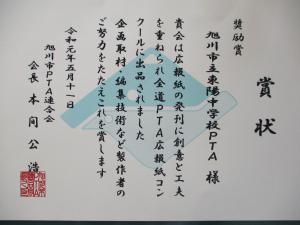 賞状
奨励賞
旭川市立東陽中学校PTA 様
貴会は広報紙の発刊に創意と工夫
を重ねられ全道PTA広報紙コン
クールに出品されました
企画取材・編集技術など製作者の
ご努力をたたえこれを賞します
令和元年五月十一日
旭川市PTA連合会
会長 本間公浩